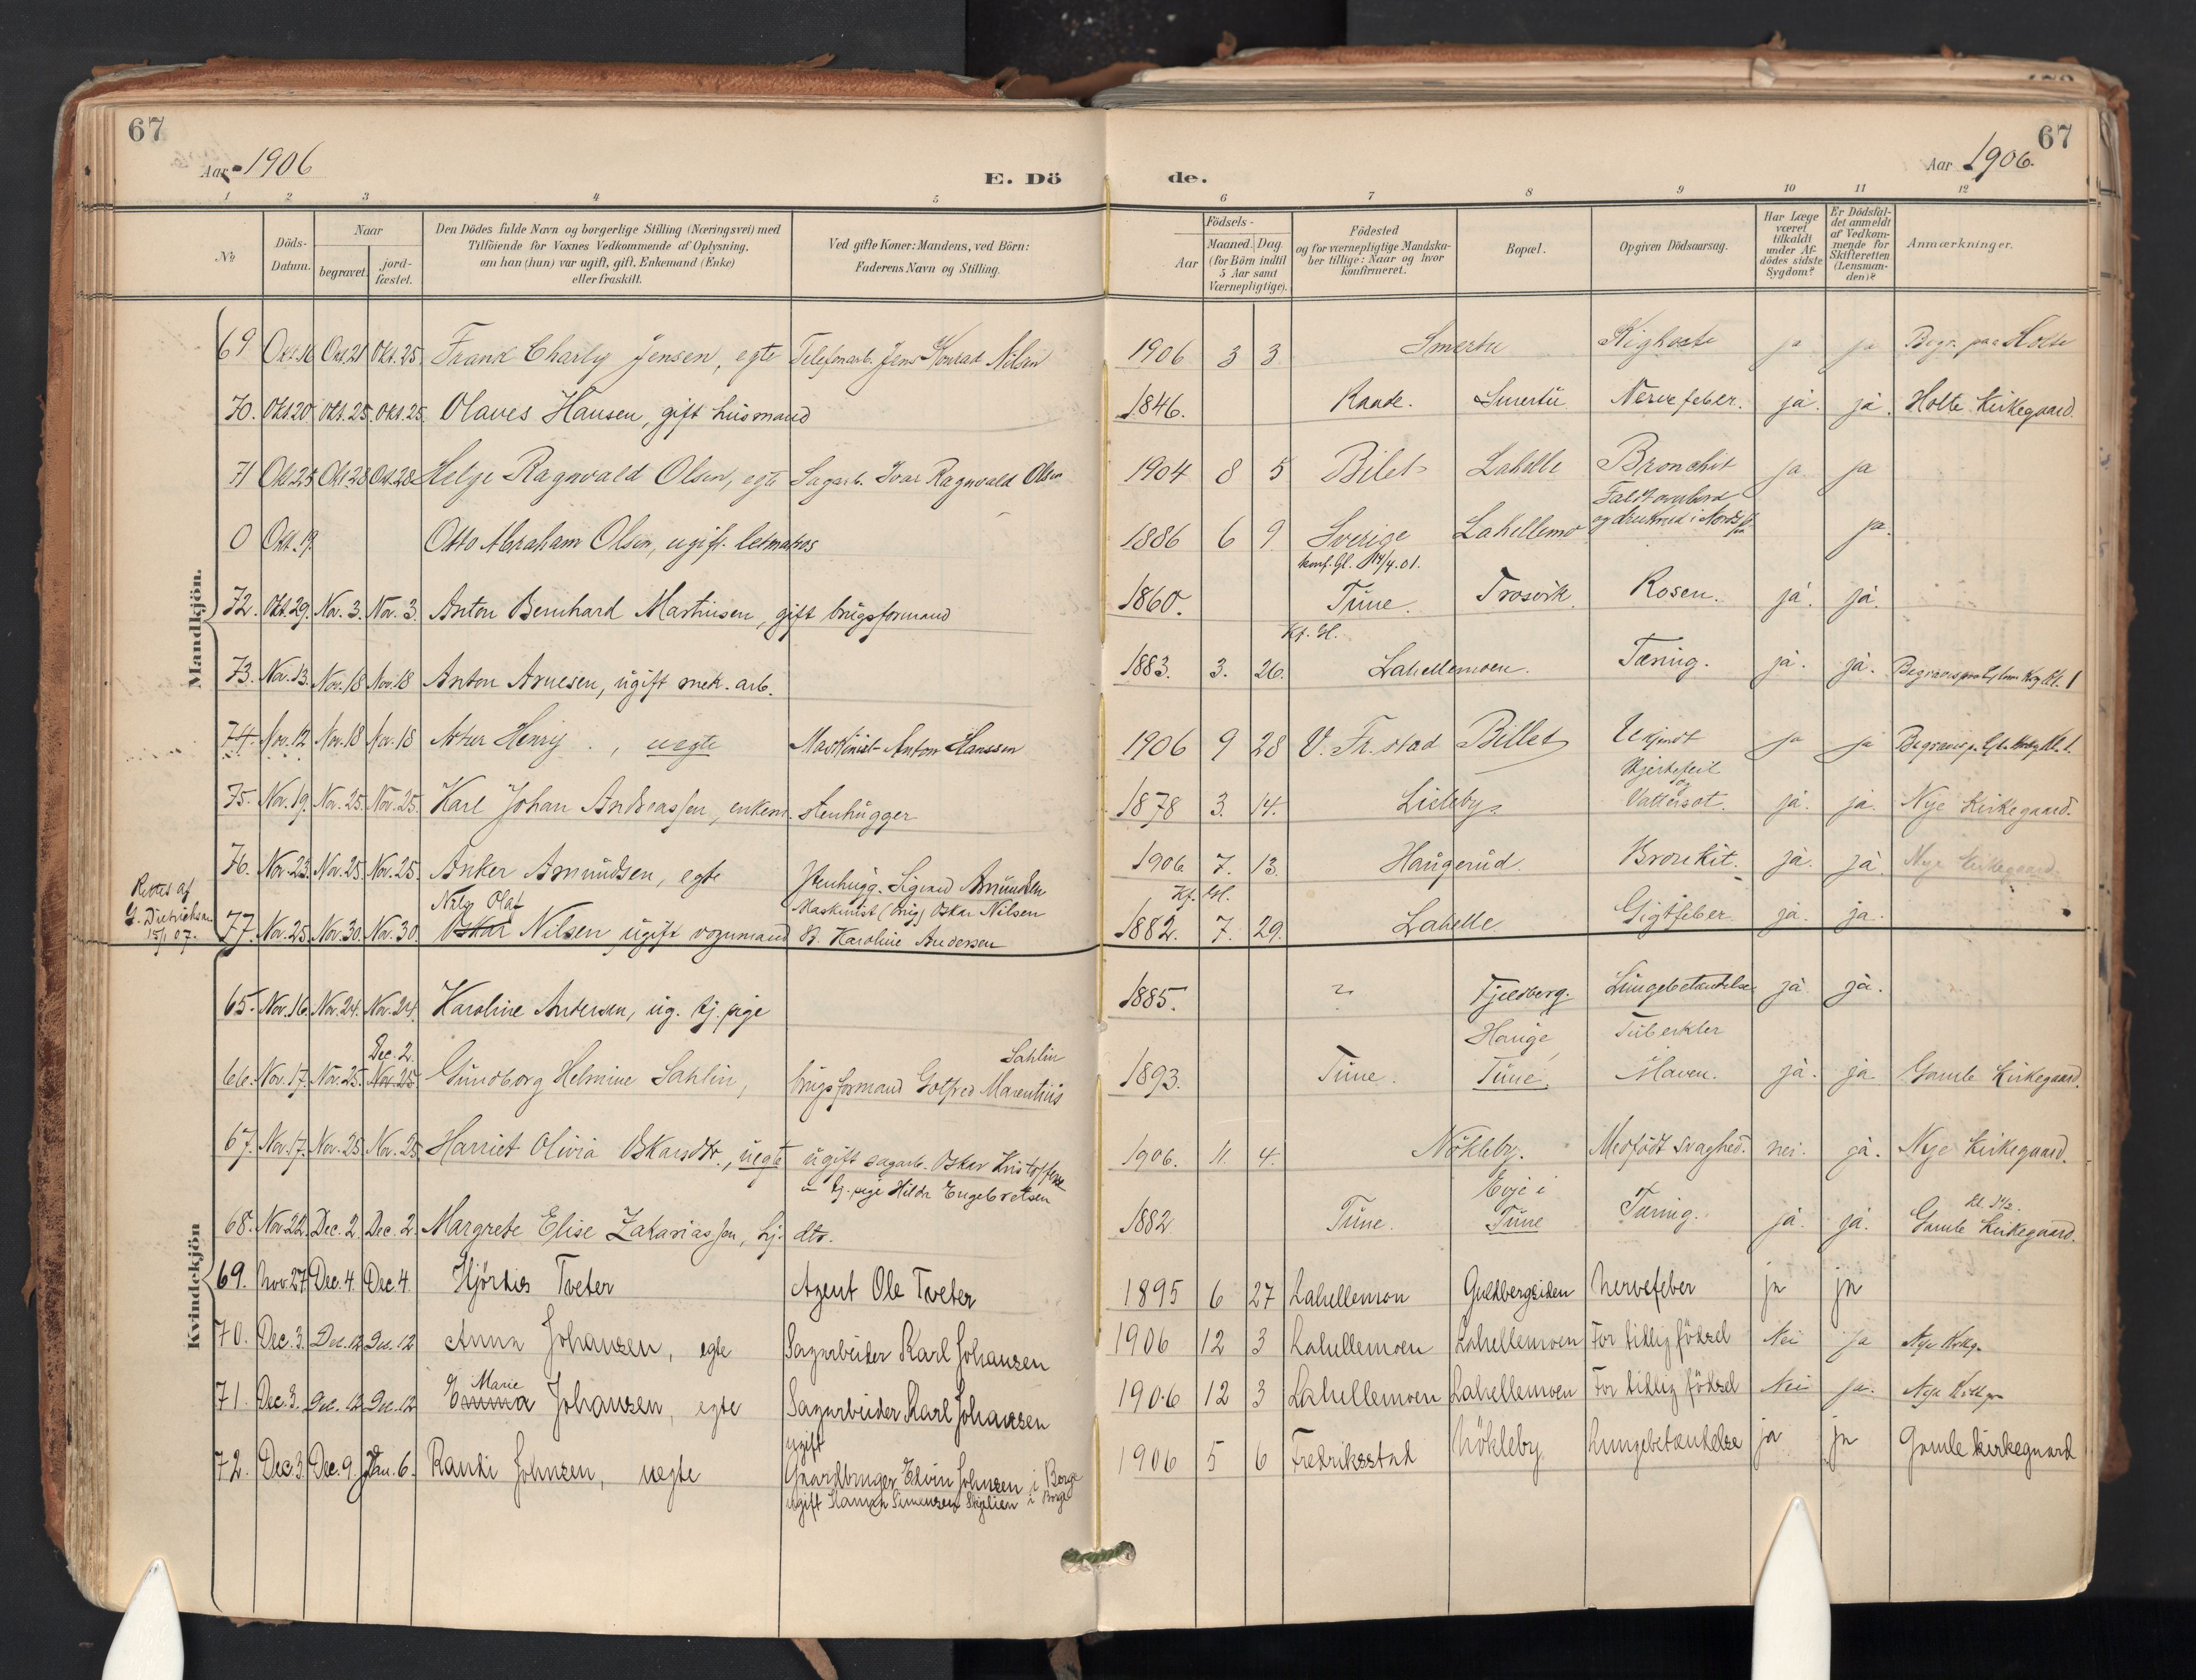 67
67
Aar 1906
E. Dö
de.
Aar 1906.
1 2 3 4 5 6 7 8 9 10 11 12
No
Döds-Datum.
Naar
begravet.
jord-fæstet.
Den Dödes fulde Navn og borgerlige Stilling (Næringsvei) med
Tilföiende for Voxnes Vedkommende af Oplysning,
om han (hun) var ugift, gift, Enkemand (Enke)
eller fraskilt.
Ved gifte Koner: Mandens, ved Börn:
Faderens Navn og Stilling.
Födsels-
Aar
Maaned. Dag.
(for Börn indtil
5 Aar samt
Værnepligtige).
Födested
og for værnepligtige Mandska-
ber tillige: Naar og hvor
konfirmeret.
Bopæl.
Opgiven Dödsaarsag.
Har Læge
været
tilkaldt
under Af-
dödes sidste
Sygdom?
Er Dödsfal-
det anmeldt
af Vedkom-
mende for
Skifteretten
(Lensman-
den)?
Anmærkninger.
Mandkjön.
69 Okt. 16 Okt. 21 Okt. 25 Frank Charly Jensen, egte Telefonarb. Jens Konrad Nilsen 1906 3 3 Smertu Kighoste ja ja Begr. paa Holte
70. Okt. 20. Okt. 25. Okt. 25. Olaves Hansen, gift husmand 1846. Raade. Smertu Nervefeber. ja. ja. Holte Kirkegaard.
71 Okt 25 Okt 28 Okt. 28 Helge Ragnvald Olsen, egte Sagarb. Ivar Ragnvald Olsen 1904 8 5 Bilet Lahelle Bronchit ja ja
0 Okt. 19. Otto Abraham Olsen, ugift letmatros 1886 6 9 Sverige Lahellemo Faldt overbord
og druknet i Nordsjøen ja.
konf. Gl. 14/4.01.
72. Okt. 29. Nov. 3. Nov. 3. Anton Bernhard Martinsen, gift brugsformand 1860. Tune. Trosvik. Rosen. ja. ja.
Kf. Gl.
73. Nov. 13. Nov. 18 Nov. 18 Anton Arnesen, ugift mek. arb. 1883. 3. 26. Lahellemoen. Tæring. ja. ja.
74. Nov. 12 Nov. 18 Nov. 18 Artur Henry, uegte Maskinist Anton Hanssen 1906 9 28 V. Fr.stad Billet Ukjendt ja ja
75. Nov. 19. Nov. 25. Nov. 25. Karl Johan Andreassen, enkem. stenhugger 1878 3. 14. Lisleby. Hjertefeil
og Vattersot. ja. ja. Nye Kirkegaard.
76. Nov. 23. Nov. 25. Nov. 25. Anker Amundsen, egte Stenhugg. Sigvard Amundsen 1906 7. 13. Haugerud. Bronkit. ja. ja. Nye Kirkegaard.
Rettet af
G. Dietrichson
15/1 07.
77. Nov. 25. Nov. 30. Nov. 30. Nils Olaf
Oskar Nilsen ugift vognmand Maskinist (brug) Oskar Nilsen
B. Karoline Andersen Kf. Gl.
1882. 7. 29. Lahelle Gigtfeber. ja. ja.
Kvindekjön
65. Nov. 16. Nov. 24. Nov. 24. Karoline Andersen, ug. tj. pige 1885. ? Fjeldberg. Lungebetændelse ja. ja.
66. Nov. 17. Nov. 25. Dec. 2.
Nov. 25 Gundborg Helmine Sahlin, brugsformand Gotfred Marentius Sahlin 1893. Tune. Hauge,
Tune. Tuberkler
Maven. ja. ja Gamle Kirkegaard.
67. Nov. 17. Nov. 25. Nov. 25. Harriet Olivia Oskarsdtr., uegte ugift sagarb. Oskar Kristoffersen
tj. pige Hilda Engebretsen 1906. 11. 4. Nökleby. Medfödt svaghed. nei. ja. Nye Kirkegaard.
68. Nov. 22. Dec. 2. Dec. 2. Margrete Elise Zakariassen, tj. dtr. 1882 Tune. Evje i
Tune Tæring. ja. ja. Kl. 1 1/2.
Gamle Kirkegaard.
69. Nov. 27 Dec. 4. Dec. 4. Hjördis Tveter Agent Ole Tveter 1895 6 27 Lahellemon Guldbergsiden Nervefeber ja ja
70. Dec. 3. Dec. 12 Dec. 12 Anna Johansen, egte Sagarbeider Karl Johansen 1906 12 3 Lahellemoen Lahellemoen For tidlig födsel Nei ja Nye Kirkg.
71. Dec. 3. Dec. 12 Dec. 12 Marie
Emma Johansen, egte Sagarbeider Karl Johansen 1906 12 3 Lahellemoen Lahellemoen For tidlig födsel Nei ja. Nye Kirkg.
72. Dec. 3. Dec. 9. Jan. 6. Randi Johnsen, uegte ugift
Gaardbruger Edvin Johnsen i Borge
ugift Hanna Simensen Skjelien i Borge 1906 5 6 Fredriksstad Nökleby Lungebetændelse ja ja Gamle kirkegaard